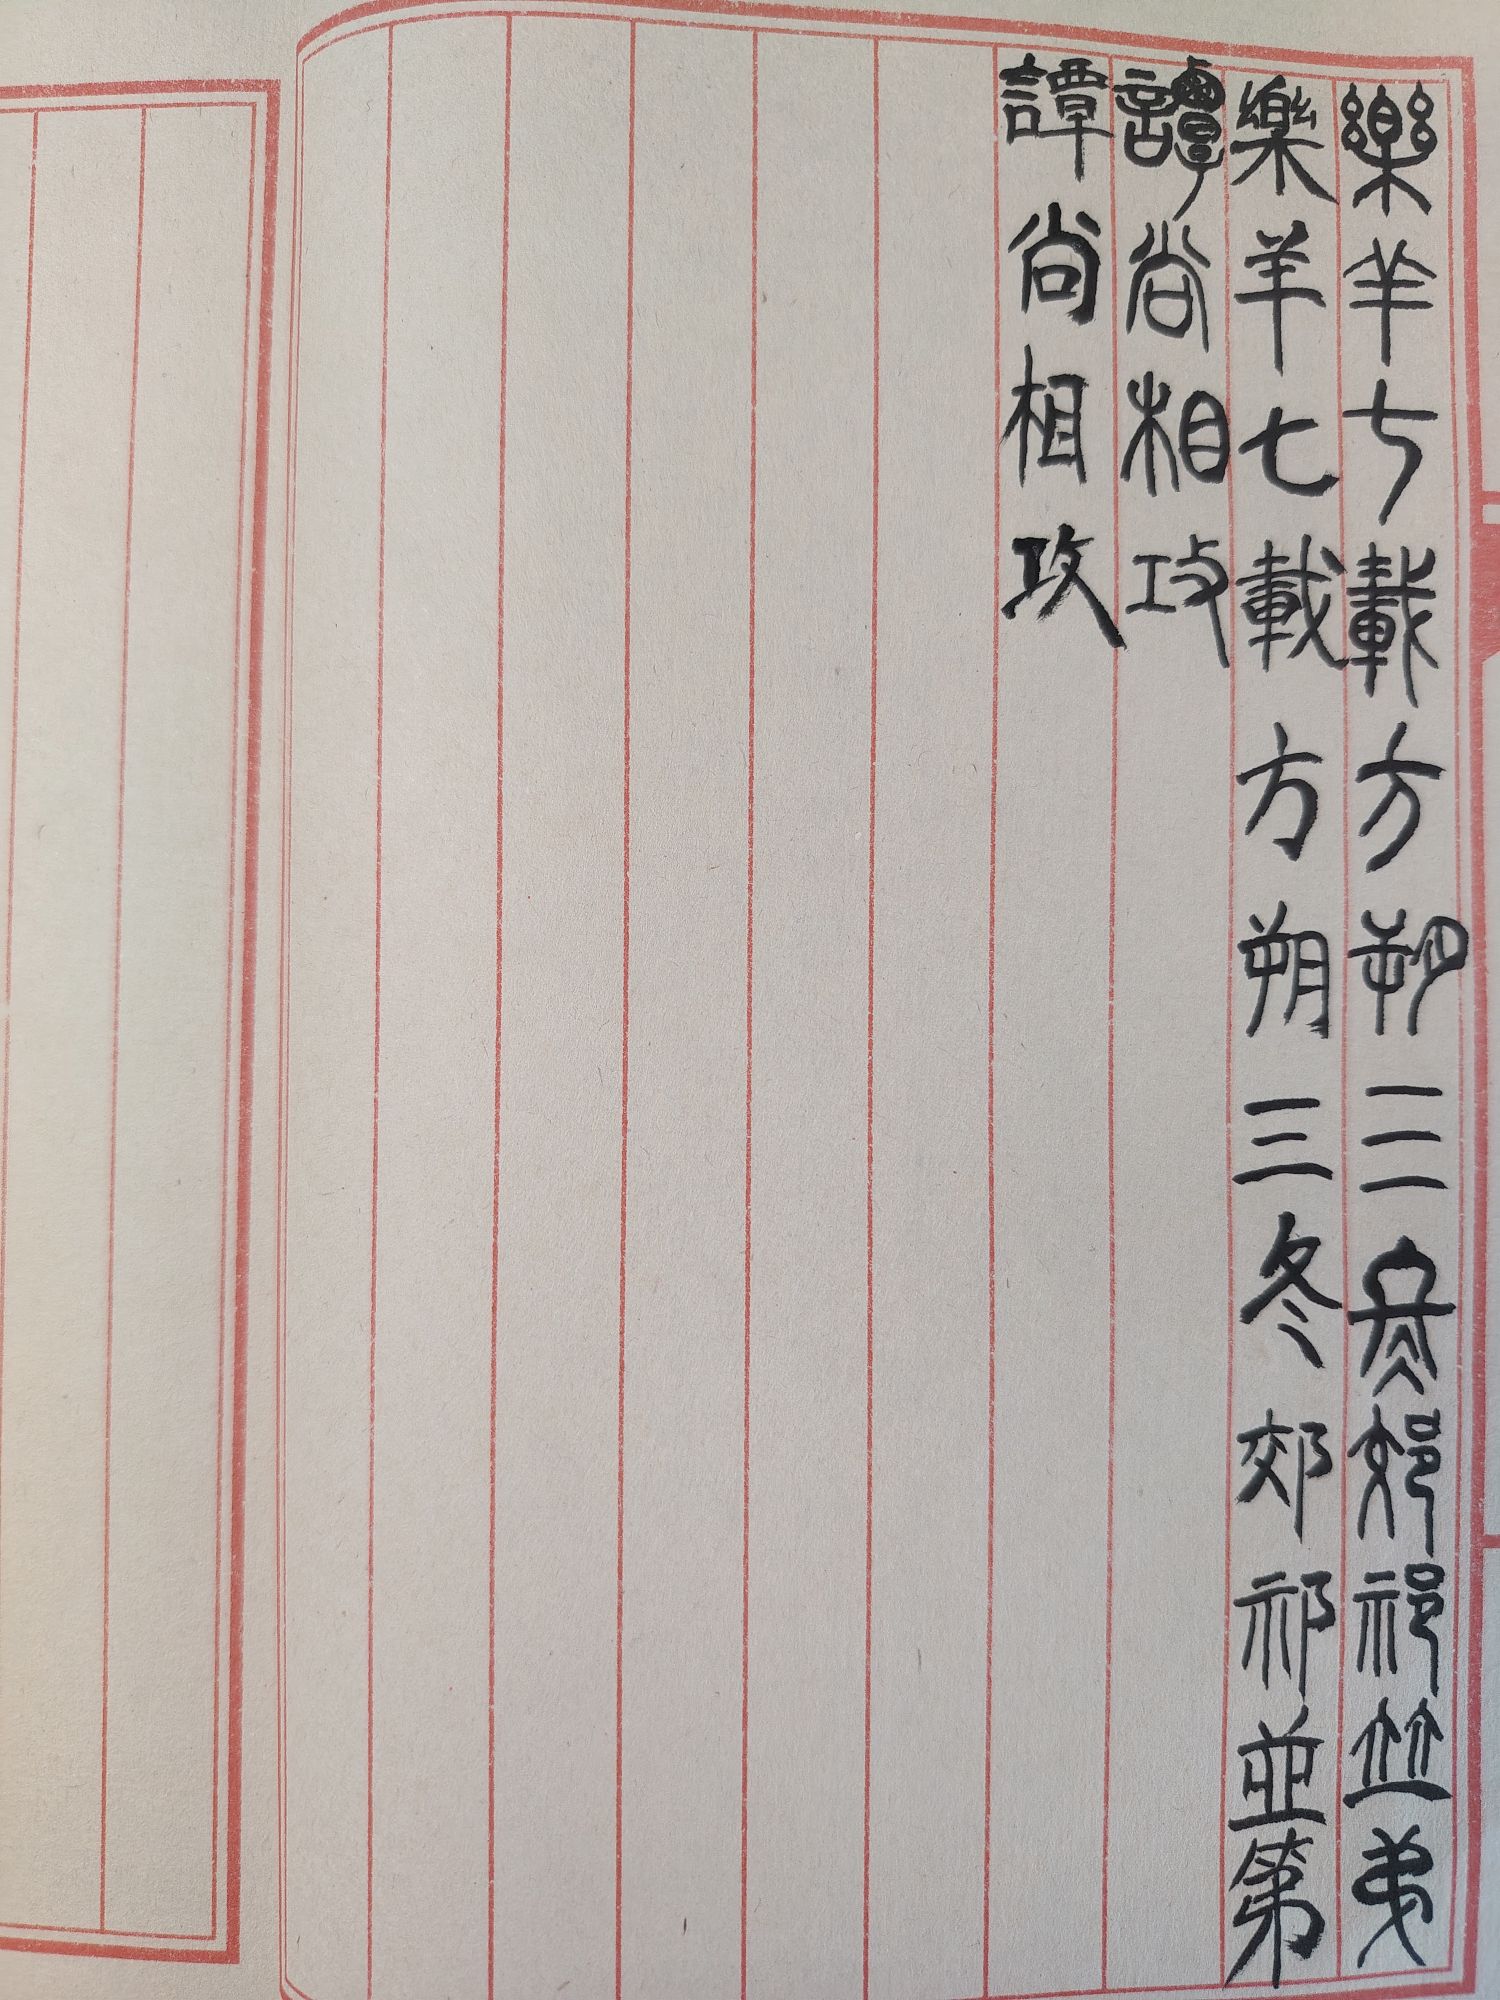 樂羊七載方朔三冬郊祁並弟
樂羊七載方朔三冬郊祁並第
譚尚相攻
譚尚相攻